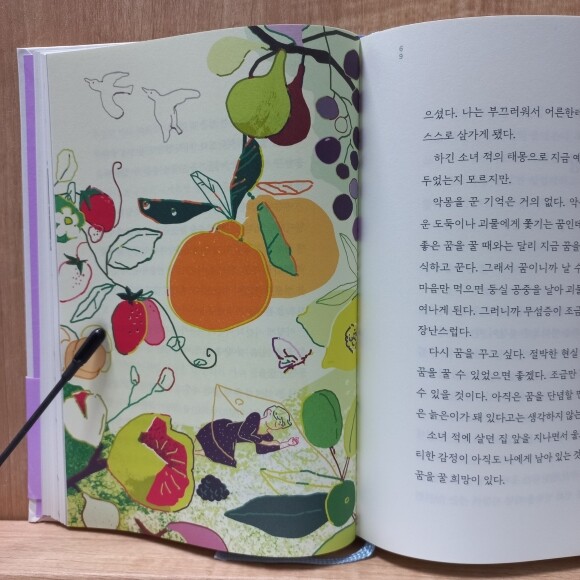 으셨다. 나는 부끄러워서 어른한테
스스로 삼가게 됐다.
하긴 소녀 적의 태몽으로 지금 예
두었는지 모르지만.
악몽을 꾼 기억은 거의 없다.
운 도둑이나 괴물에게 쫓기는 꿈인데
좋은 꿈을 꿀 때와는 달리 지금 꿈을
식하고 꾼다. 그래서 꿈이니까 날 수
마음만 먹으면 둥실 공중을 날아 괴
여나게 된다. 그러니까 무섬증이 조금
장난스럽다.
다시 꿈을 꾸고 싶다. 절박한 현실
꿈을 꿀 수 있었으면 좋겠다. 조금만
수 있을 것이다. 아직은 꿈을 단념할 만
은 늙은이가 돼 있다고는 생각하지 않는
소녀 적에 살던 집 앞을 지나면서 울
티한 감정이 아직도 나에게 남아 있는 것
꿈을 꿀 희망이 있다.